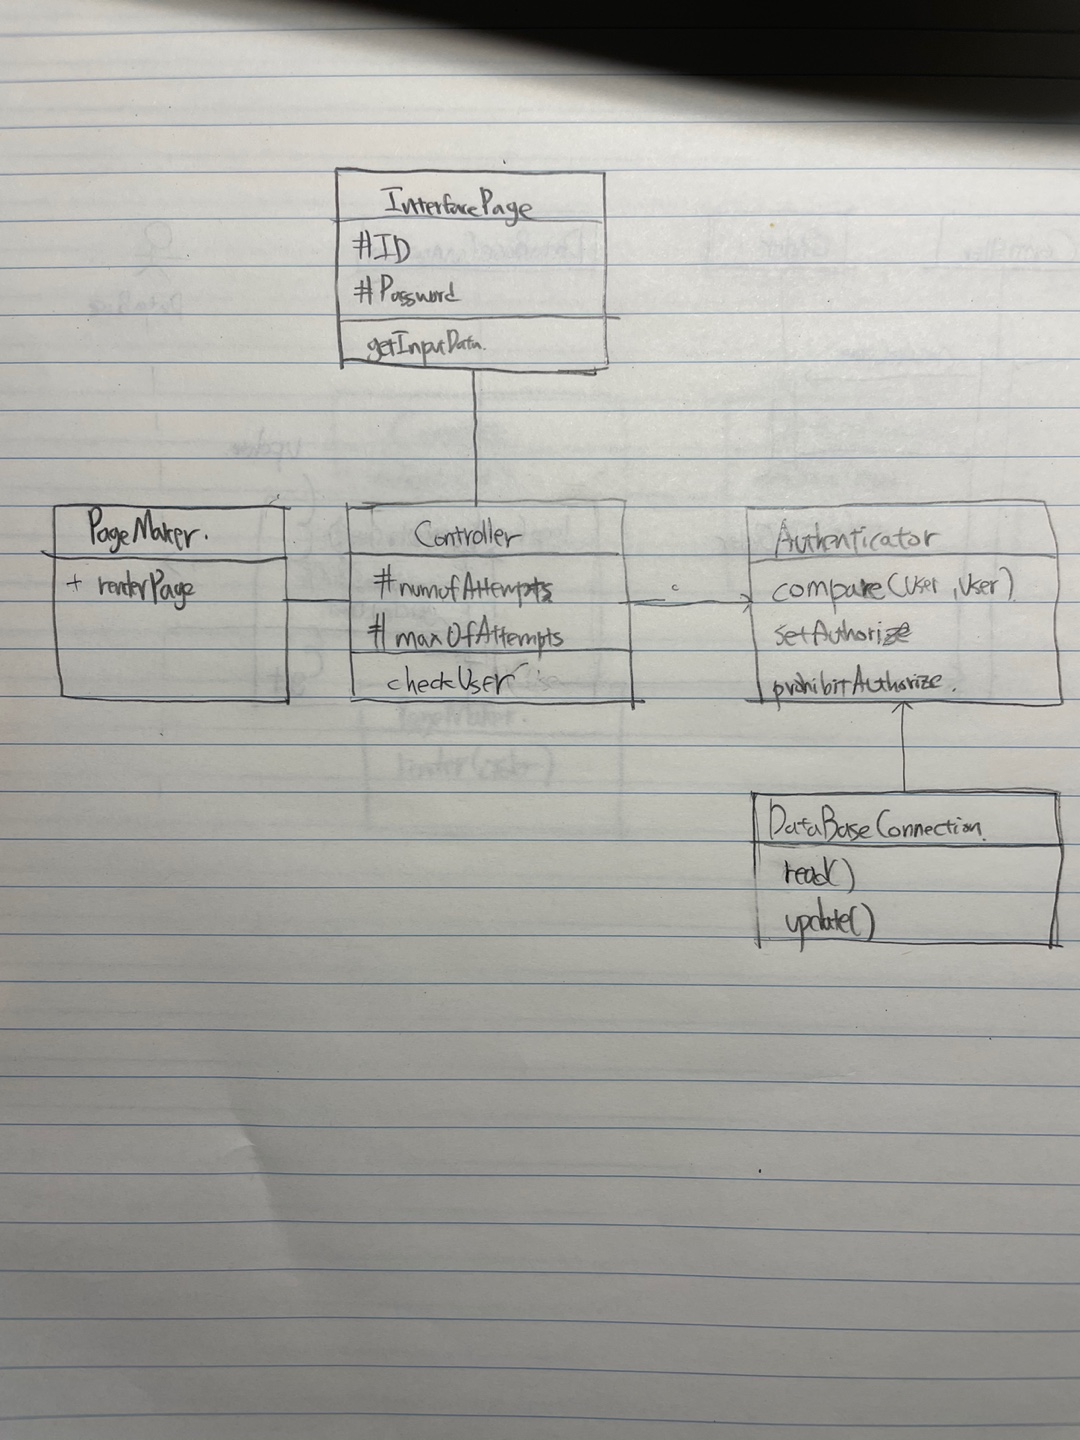 InterfacePage
#ID
#Password
getInputData.
PageMaker.
+ renderPage
Controller
#numofAttempts
#maxOfAttempts
checkUser
Authenticator
compare(User, User)
setAuthorize
prohibitAuthorize.
DataBaseConnection
read()
update()